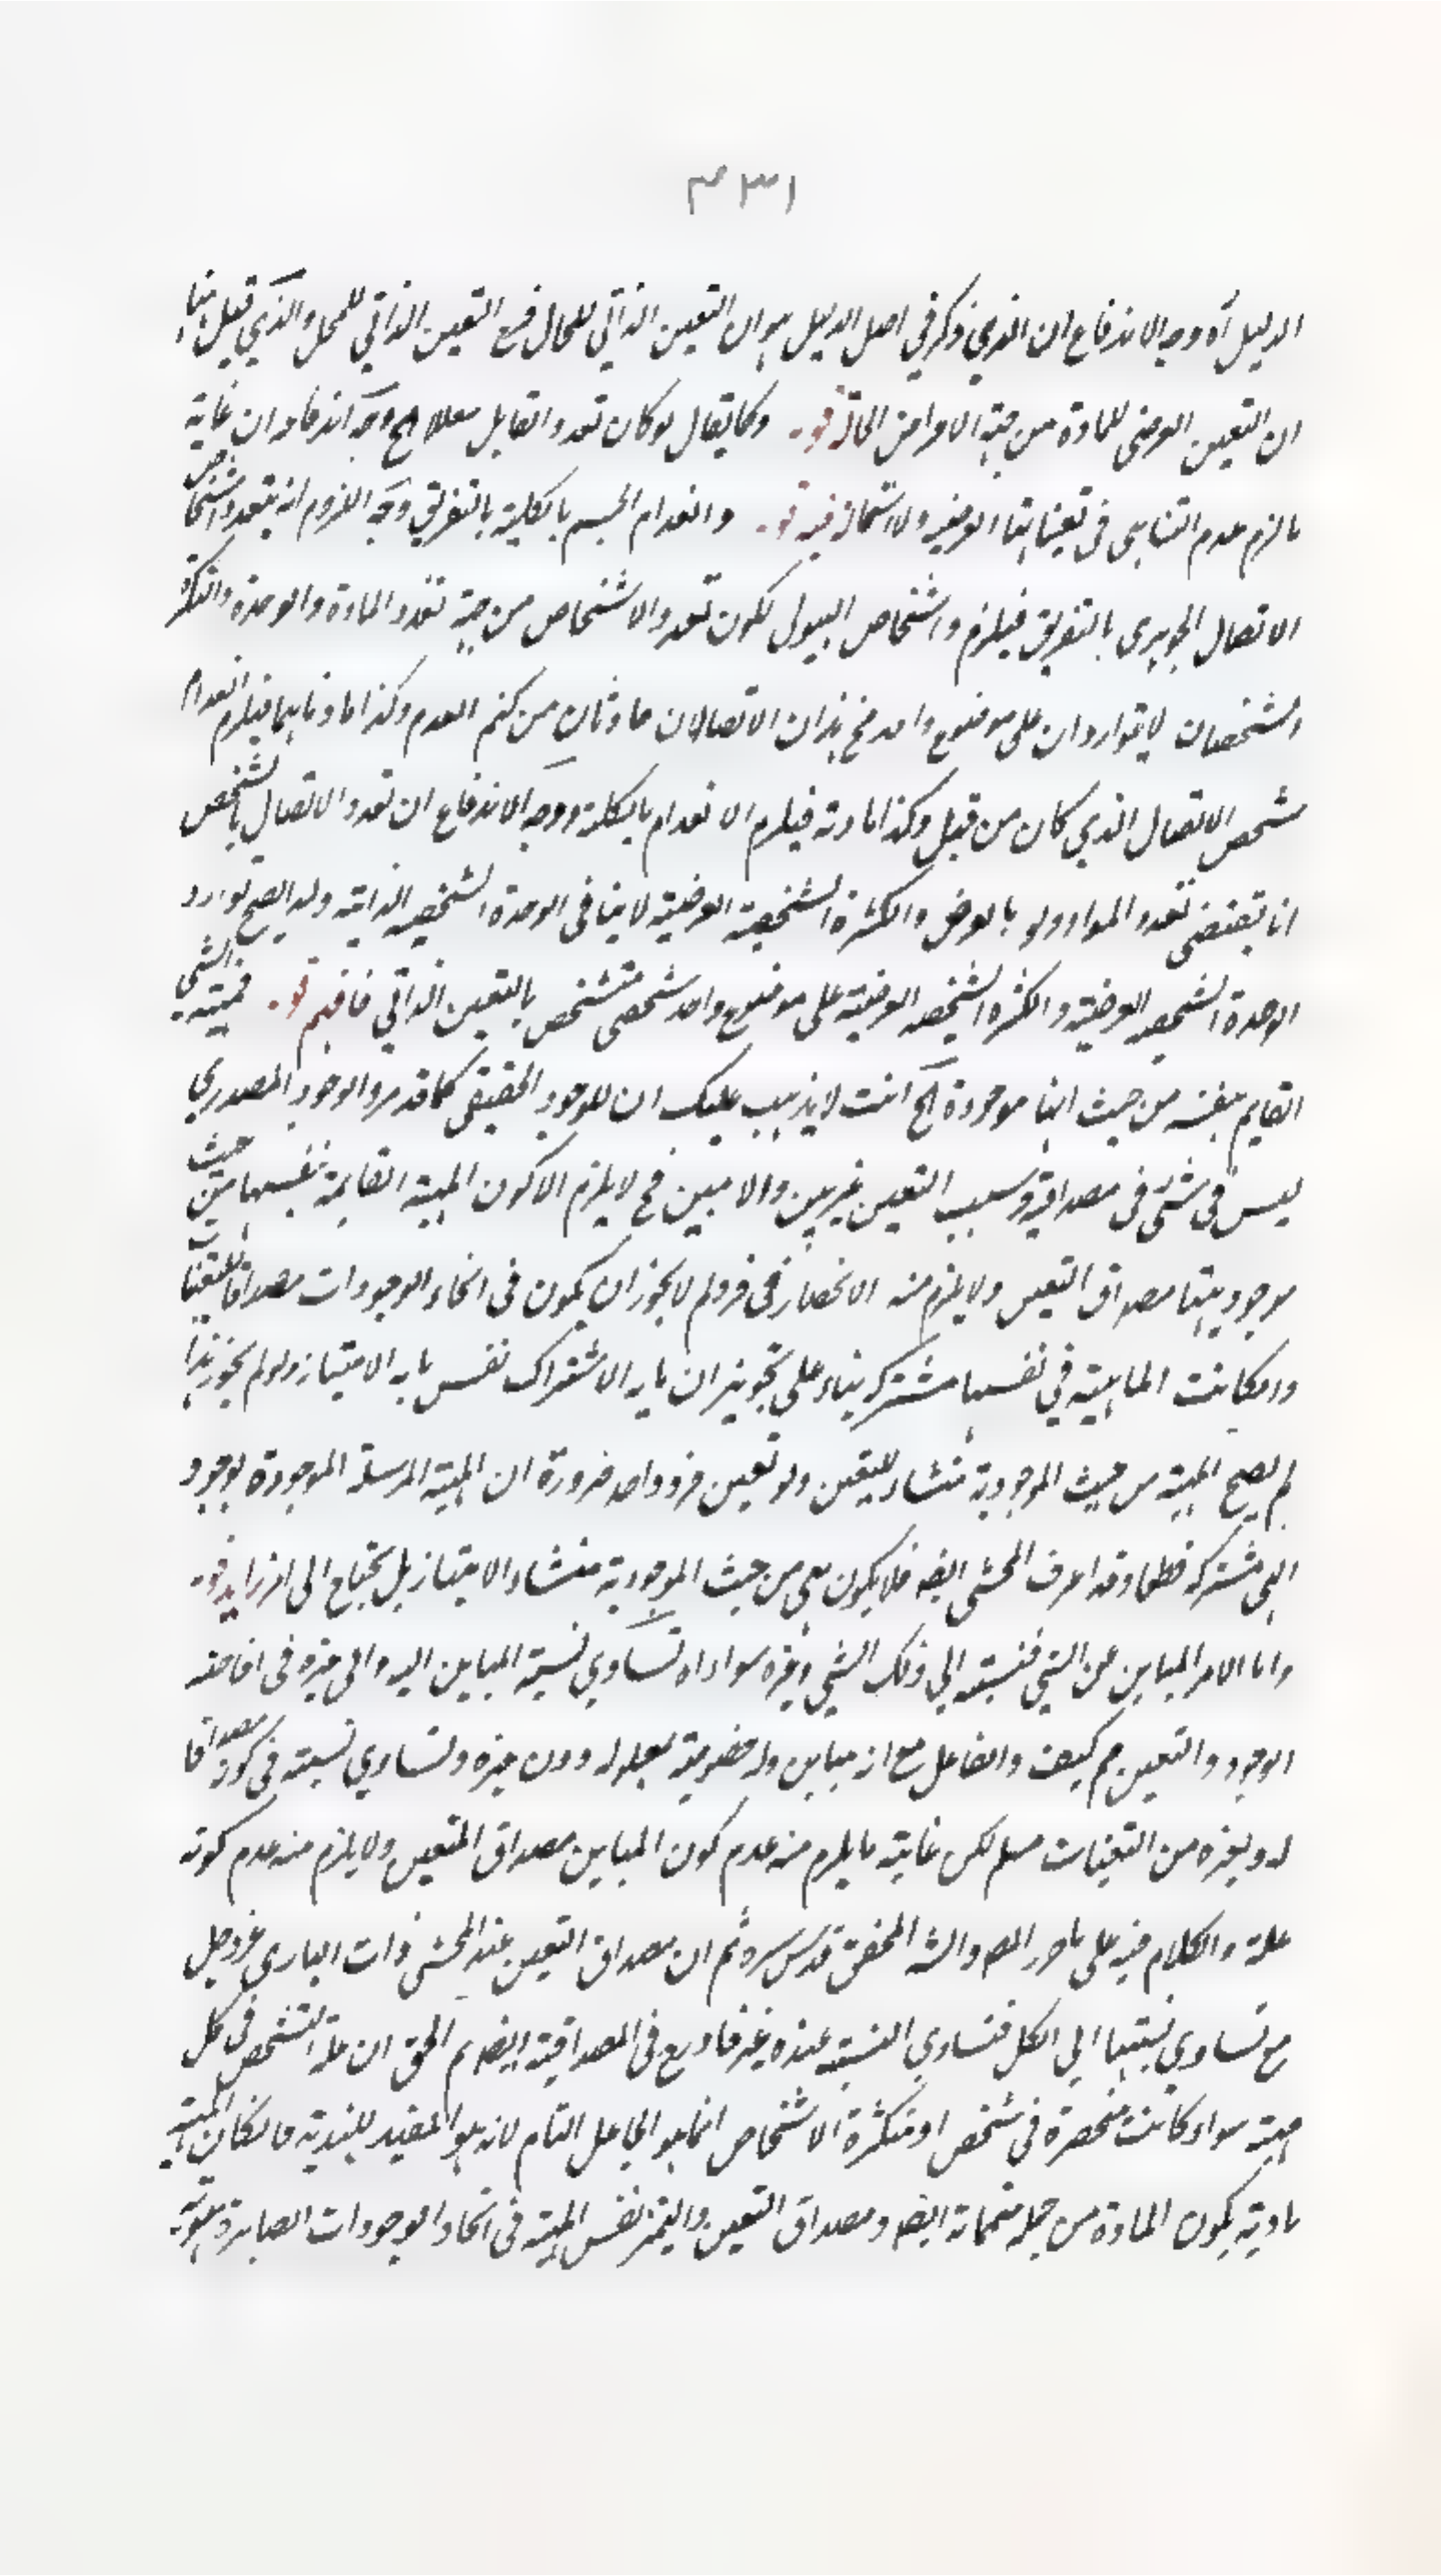 ١٣١ م
الدليل آه وجه الاندفاع ان الذي ذكر في اصل الدليل هو ان التعين الذاتي للحال فرع التعين الذاتي للمحل والذي قيل هنا
ان التعين العرضي للمادة من جهة الاعراض الحالة قوله وكما يقال لو كان تعدد القابل معللا الخ وجه اندفاعه ان غاية
ما لزم عدم التناهي في تعيناتها العرضية ولا استحالة فيه قوله وانعدام الجسم بالكلية بالتفريق وجه اللزوم انه يتعدد اشخاص
الاتصال الجوهري بالتفريق فيلزم واشخاص الهيولى لكون تعدد الاشخاص من جهة تعدد المادة والوحدة والكثرة
الشخصيتان لا يتواردان على موضوع واحد فح هذان الاتصالان حادثان من كتم العدم وكذا مادتاهما فيلزم انعدام
شخص الاتصال الذي كان من قبل وكذا مادته فيلزم الانعدام بالكلية ووجه الاندفاع ان تعدد الاتصال بالشخص
انما يقتضي تعدد المواد ولو بالعرض والكثرة الشخصية العرضية لا ينافي الوحدة الشخصية الذاتية ولذا يصح توارد
الوحدة الشخصية العرضية والكثرة الشخصية العرضية على موضوع واحد شخصي متشخص بالتعين الذاتي فافهم قوله فمهية الشي
القايم بنفسه من حيث انها موجودة الخ انت لا يذهب عليك ان للوجود الحقيقي كما قد مر والوجود المصدري
ليس في شئ في مصداقية وسبب التعين غير بين والا مبين فح لا يلزم الا كون المهية القايمة بنفسها من حيث
موجوديتها مصداق التعين ولا يلزم منه الانحصار في فرد لم لا يجوز ان يكون في انحاء الوجودات مصداقا للتعينات
وان كانت الماهية في نفسها مشتركة بناء على تجويز ان ما به الاشتراك نفس ما به الامتياز ولو لم يجوز هذا
لم يصح المهية من حيث الموجودية منشاء للتعين ولو تعين فرد واحد ضرورة ان المهية المرسلة الموجودة بوجود
الهى مشتركة قطعا وقد اعترف المحشي ايضا فلا يكون هي من حيث الموجودية منشاء الامتياز بل يحتاج الى امر زايد قوله
واما الامر المباين عن الشي فنسبته الى ذلك الشي وغيره سواء اه تساوي نسبة المباين اليه والى غيره في افاضة
الوجود والتعين مم كيف والفاعل مع انه مباين وله خصوصية بمعلوله دون غيره وتساوي نسبته في كونه مصداقا
له ولغيره من التعينات مسلم لكن غاية ما يلزم منه عدم كون المباين مصداق التعين ولا يلزم منه عدم كونه
علة والكلام فيه على ما حرر المصـ والشـ المحقق قدس سره ثم ان مصداق التعين عند المحشي ذات الباري عز وجل
مع تساوي نسبتها الى الكل فتساوي النسبة عنده غير قادح في المصداقية ايضا ثم الحق ان علة التشخص في كل
مهية سواء كانت منحصرة في شخص او متكثرة الاشخاص انما هو الجاعل التام لانه هو المفيد للهذية فان كان المهية
مادية يكون المادة من جملة متمماته ايضا ومصداق التعين والتميز نفس المهية في انحاء الوجودات الصايرة هوية